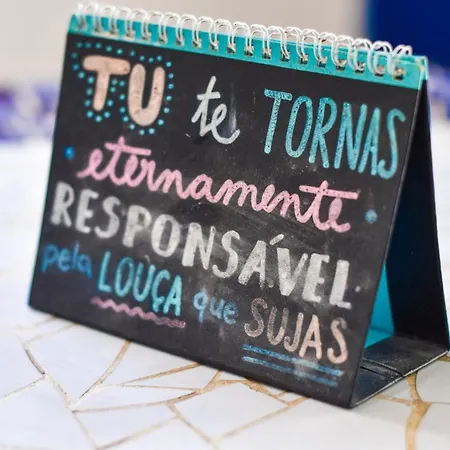 TU te TORNAS
eternamente
RESPONSÁVEL
pela LOUÇA que SUJAS